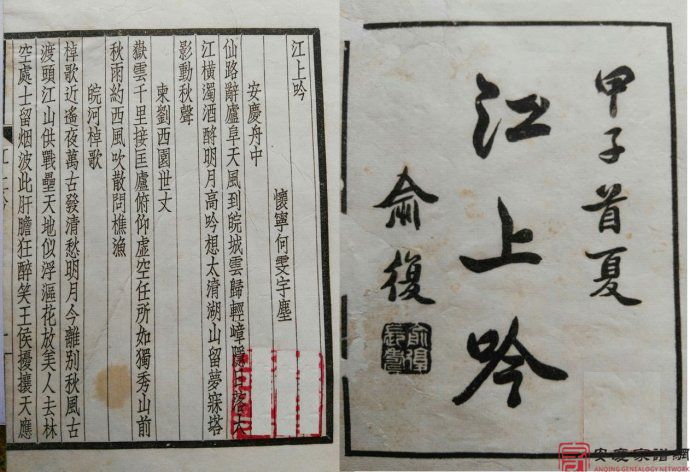 甲子首夏
江上吟
俞復
江上吟
懷寧何雯宇塵
安慶舟中
仙路辭廬阜天風到皖城雲歸輕嶂隱日落大
江橫濁酒酹明月高吟想太清湖山留夢寐塔
影動秋聲
柬劉西園世丈
嶽雲千里接匡廬俯仰虛空任所如獨秀山前
秋雨約西風吹散問樵漁
皖河棹歌
棹歌近遙夜萬古發清愁明月今離別秋風古
渡頭江山供戰壘天地似浮漚花放美人去林
空處士留烟波此肝膽狂醉笑王侯擾攘天應
安慶家譜網
ANQING GENEALOGY NETWORK